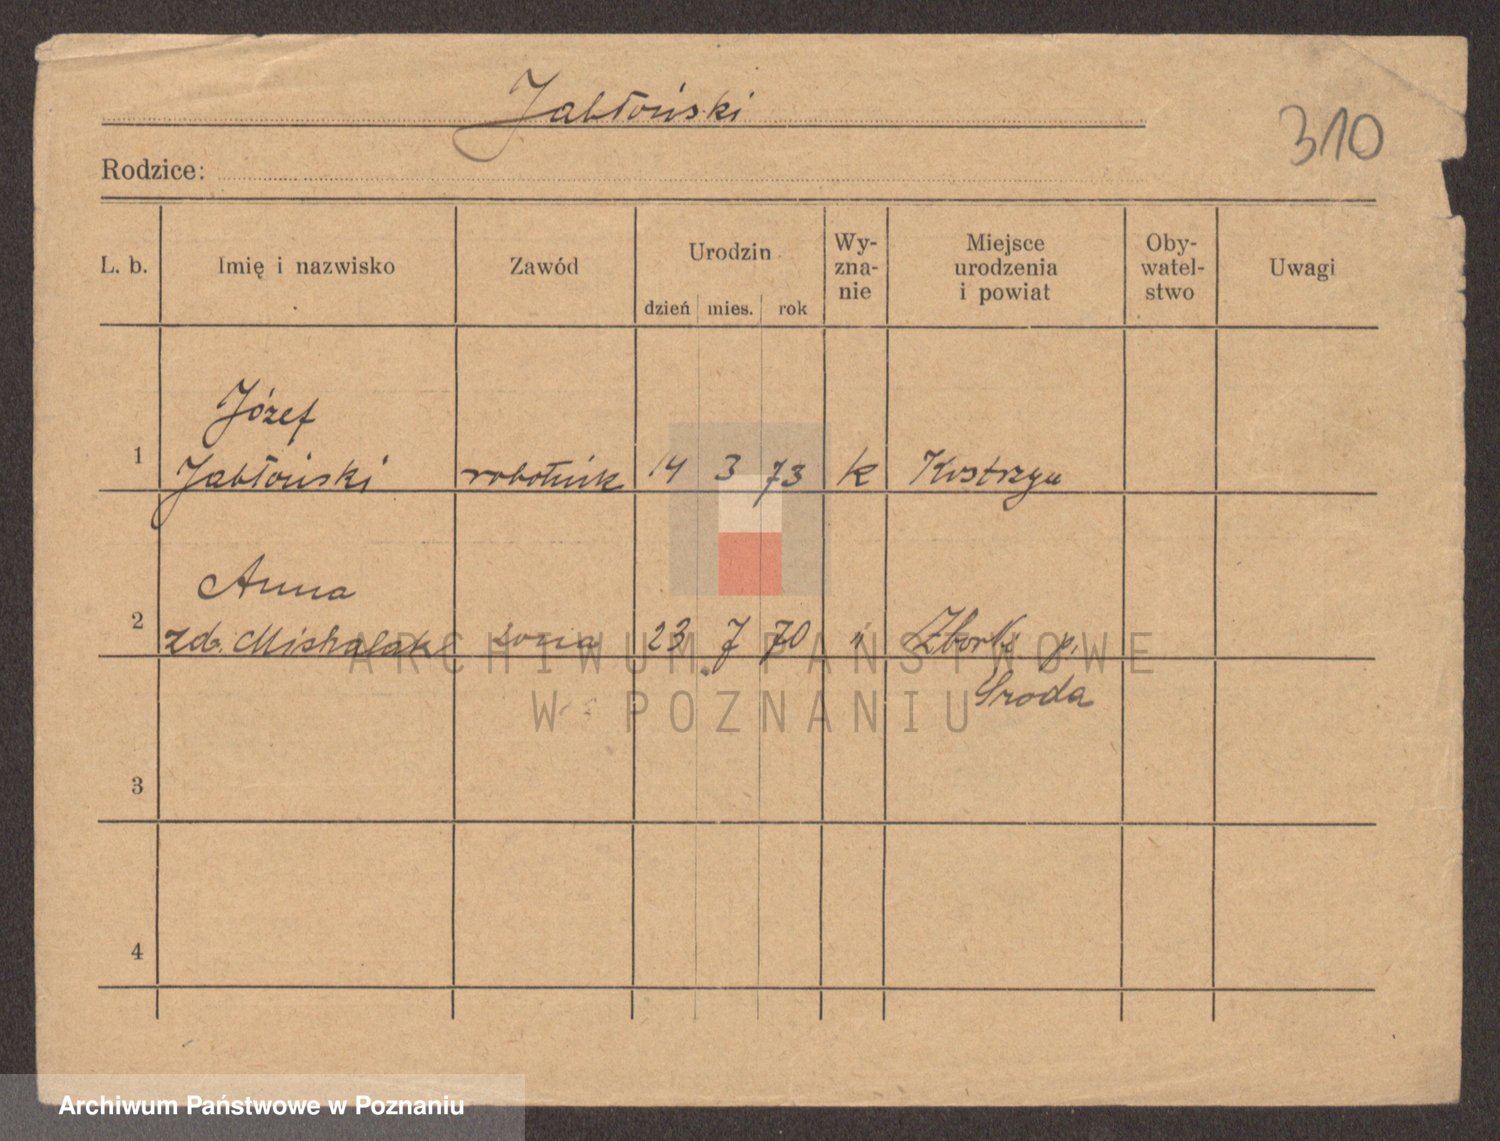 Jabłoński
310
Rodzice:
L. b. Imię i nazwisko Zawód Urodzin Wy-zna-nie Miejsce urodzenia i powiat Oby-watel-stwo Uwagi
dzień mies. rok
Józef
1 Jabłoński robotnik 14 3 73 k Kostrzyn
Anna
2 zd. Michalak żona 23 7 70 " p.
Środa
3
4
ARCHIWUM PAŃSTWOWE
W POZNANIU
Archiwum Państwowe w Poznaniu